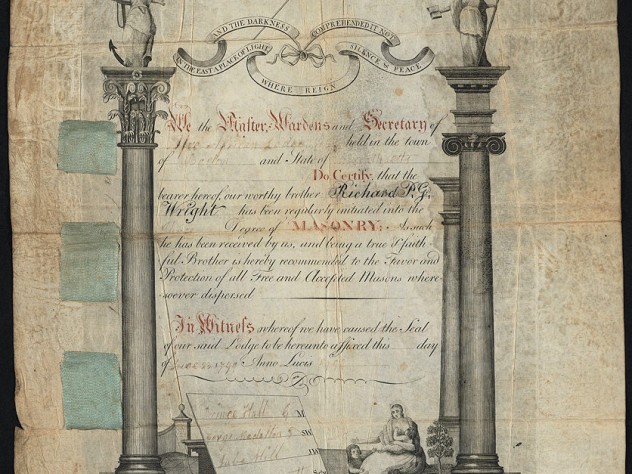 AND THE DARKNESS COMPREHENDED IT NOT
IN THE EAST A PLACE OF LIGHT SILENCE & PEACE
WHERE REIGN
We the Master, Wardens and Secretary of
held in the town
of and State of
Do Certify, that the
bearer hereof, our worthy brother Richard P. G.
Wright has been regularly initiated into the
Degree of MASONRY; As such
he has been received by us, and being a true & faith-
ful Brother is hereby recommended to the Favor and
Protection of all Free and Accepted Masons where-
soever dispersed
In Witness whereof we have caused the Seal
of our said Lodge to be hereunto affixed this day
of Anno Lucis
M
SW
JW